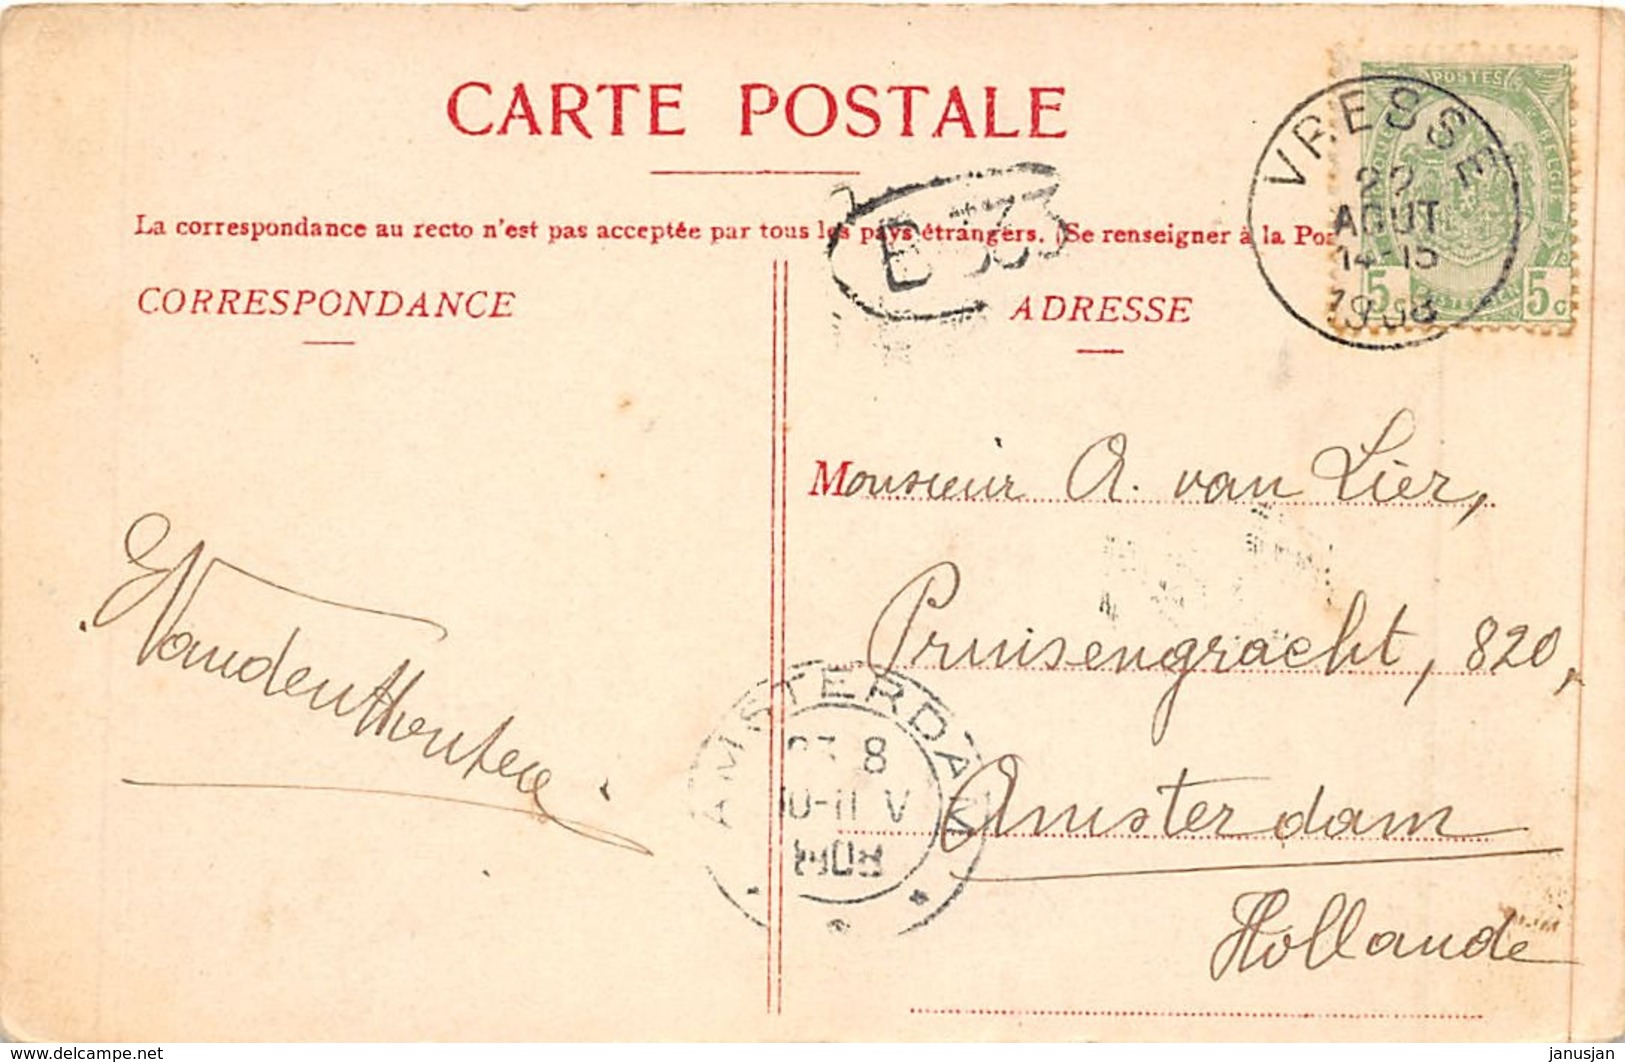 CARTE POSTALE
La correspondance au recto n'est pas acceptée par tous les pays étrangers. (Se renseigner à la Pos
CORRESPONDANCE
ADRESSE
B 333
VRESSE
22
AOUT
14-15
1908
POSTES
5c 5c
POSTERIJEN
Monsieur A. van Lier,
Pruisengracht, 820,
Amsterdam
Hollande
AMSTERDAM
23 8
10-11 V
1908
www.delcampe.net
janusjan